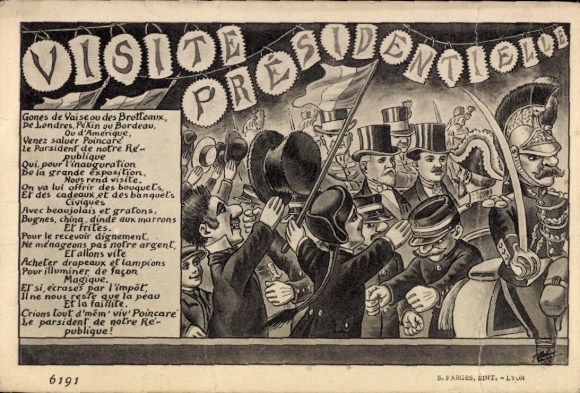 VISITE
PRÉSIDENTIELLE
Gones de Vaise ou des Brotteaux,
De Londres, Pékin ou Bordeau,
Ou d'Amérique,
Venez saluer Poincaré
Le Parsident de notre Ré-
publique
Qui, pour l'inauguration
De la grande exposition,
Nous rend visite.
On va lui offrir des bouquets,
Et des cadeaux et des banquets
Civiques
Avec beaujolais et gratons,
Bugnes, china, dinde aux marrons
Et frites.
Pour le recevoir dignement,
Ne ménageons pas notre argent,
Et allons vite
Acheter drapeaux et lampions
Pour illuminer de façon
Magique.
Et si, écrasés par l'impôt,
Il ne nous reste que la peau
Et la faillite,
Crions tout d'mêm' viv' Poincaré
Le parsident de notre Ré-
publique!
6191
S. FARGES, ÉDIT. – LYON